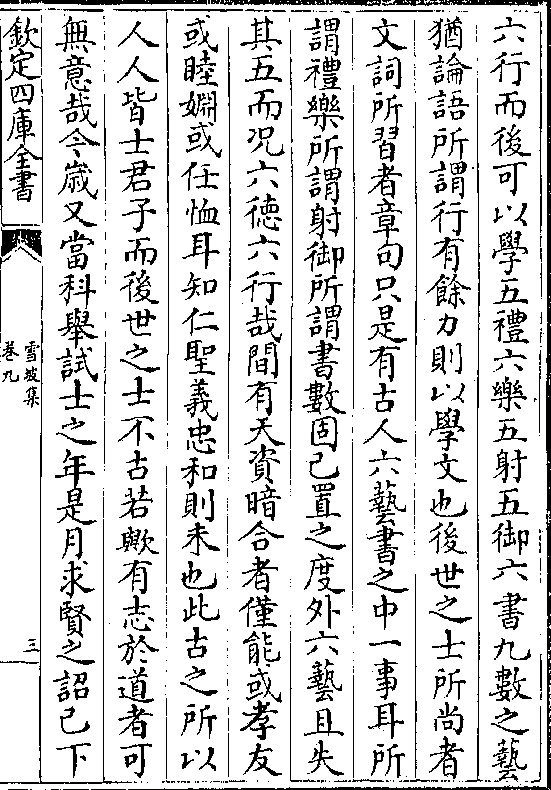 六行而後可以學五禮六樂五射五御六書九數之藝
猶論語所謂行有餘力則以學文也後世之士所尚者
文詞所習者章句只是有古人六藝書之中一事耳所
謂禮樂所謂射御所謂書數固已置之度外六藝且失
其五而况六德六行哉間有天資暗合者僅能或孝友
或睦婣或任恤耳知仁聖義忠和則未也此古之所以
人人皆士君子而後世之士不古若歟有志於道者可
無意哉今歳又當科舉試士之年是月求賢之詔已下
欽定四庫全書
雪坡集
卷九
三